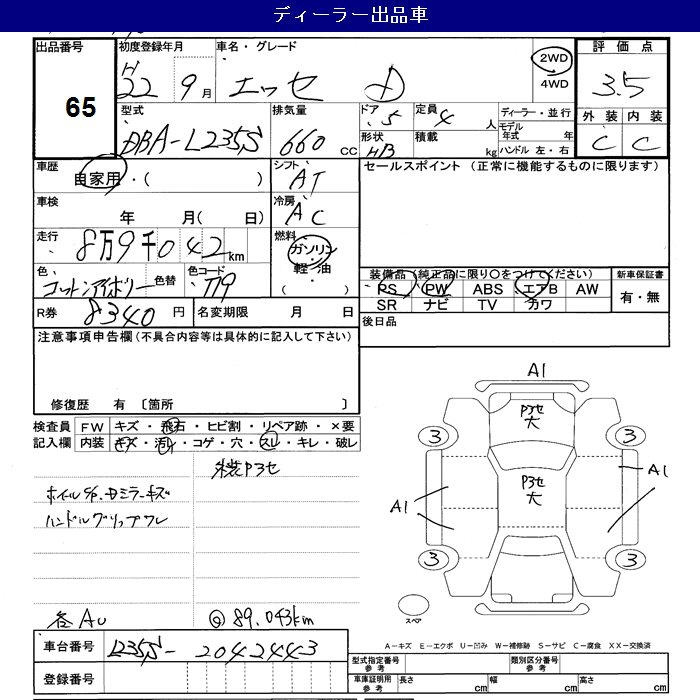 ディーラー出品車
出品番号 65
初度登録年月 H22 9月
車名・グレード エッセ D
2WD 4WD
評価点 3.5
外装 内装
C C
型式 DBA-L235S
排気量 660 CC
ドア 5 定員 4 人
形状 H/B 積載 kg
ディーラー・並行
モデル年式 年
ハンドル 左・右
車歴 自家用・( )
シフト AT
セールスポイント (正常に機能するものに限ります)
車検 年 月( 日)
冷房 AC
走行 8万9千042km
燃料 ガソリン・軽・油・( )
色 コットンアイボリー 色替 色コード T19
装備品(純正品に限り〇をつけてください) 新車保証書
PS PW ABS エアB AW 有・無
SR ナビ TV カワ
R券 8340円 名変期限 月 日
後日品
注意事項申告欄(不具合内容等は具体的に記入して下さい)
修復歴 有 〔箇所 〕
検査員 FW キズ・飛石・ヒビ割・リペア跡・×要
記入欄 内装 キズ・汚レ・コゲ・穴・スレ・キレ・破レ
ホイールS/P.Dミラーキズ
ハンドルグリップワレ
各AU
@ 89.043km
A1
大
大
3 3
A1 A1
3 3
スペア
車台番号 L235S-2042443
登録番号
A-キズ E-エクボ U-凹み W-補修跡 S-サビ C-腐食 XX-交換済
型式指定番号 参考 類別区分番号 参考
車庫証明用 参考 長さ cm 幅 cm 高さ cm